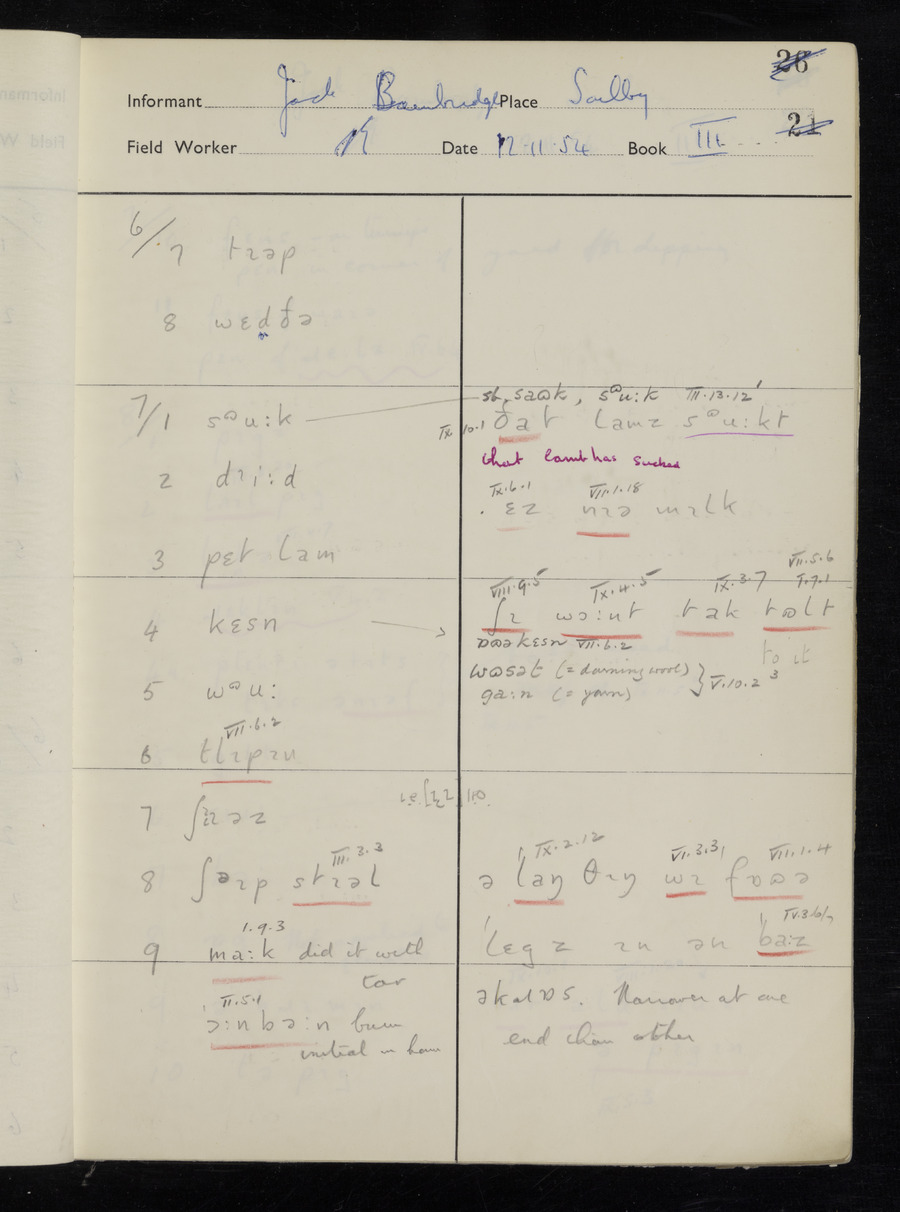 26
Informant Jack Bambridge Place Soulby
21
Field Worker Date 12·11·54 Book III
6/7 tɹəp
8 wɛdðə
7/1 sᶷu:k
sb. saʊk, sᶷu:k III·13·12
IX·10·1 ðat lamz sᶷu:kt
that lamb has sucked
2 dɹi:d
IX·6·1 VII·1·18
ɛz nɪə mɪlk
3 pɛt lam
VII·5·6
VIII·9·5 IX·4·5 IX·3·7 V·7·1
4 kɛsn
ʃɪ wɔ:nt tak tʊlt
to it
VII·6·2
(= darning wool)
5 wᶷu:
(= yarn) } V·10·2 3
VII·6·2
6 tlɪpɪn
7 ʃɪəz
III·3·3
8 ʃəɪp stɪəl
IX·2·12 VI·3·3 VII·1·4
ə laŋ θɪŋ wɪ fɒʊə
1·9·3
9 ma:k did it with
tar
IV·3·6/7
lɛgz ɪn ən ba:z
II·5·1
ɔ:nbɔ:n burn
initial in horn
Narrower at one
end than other